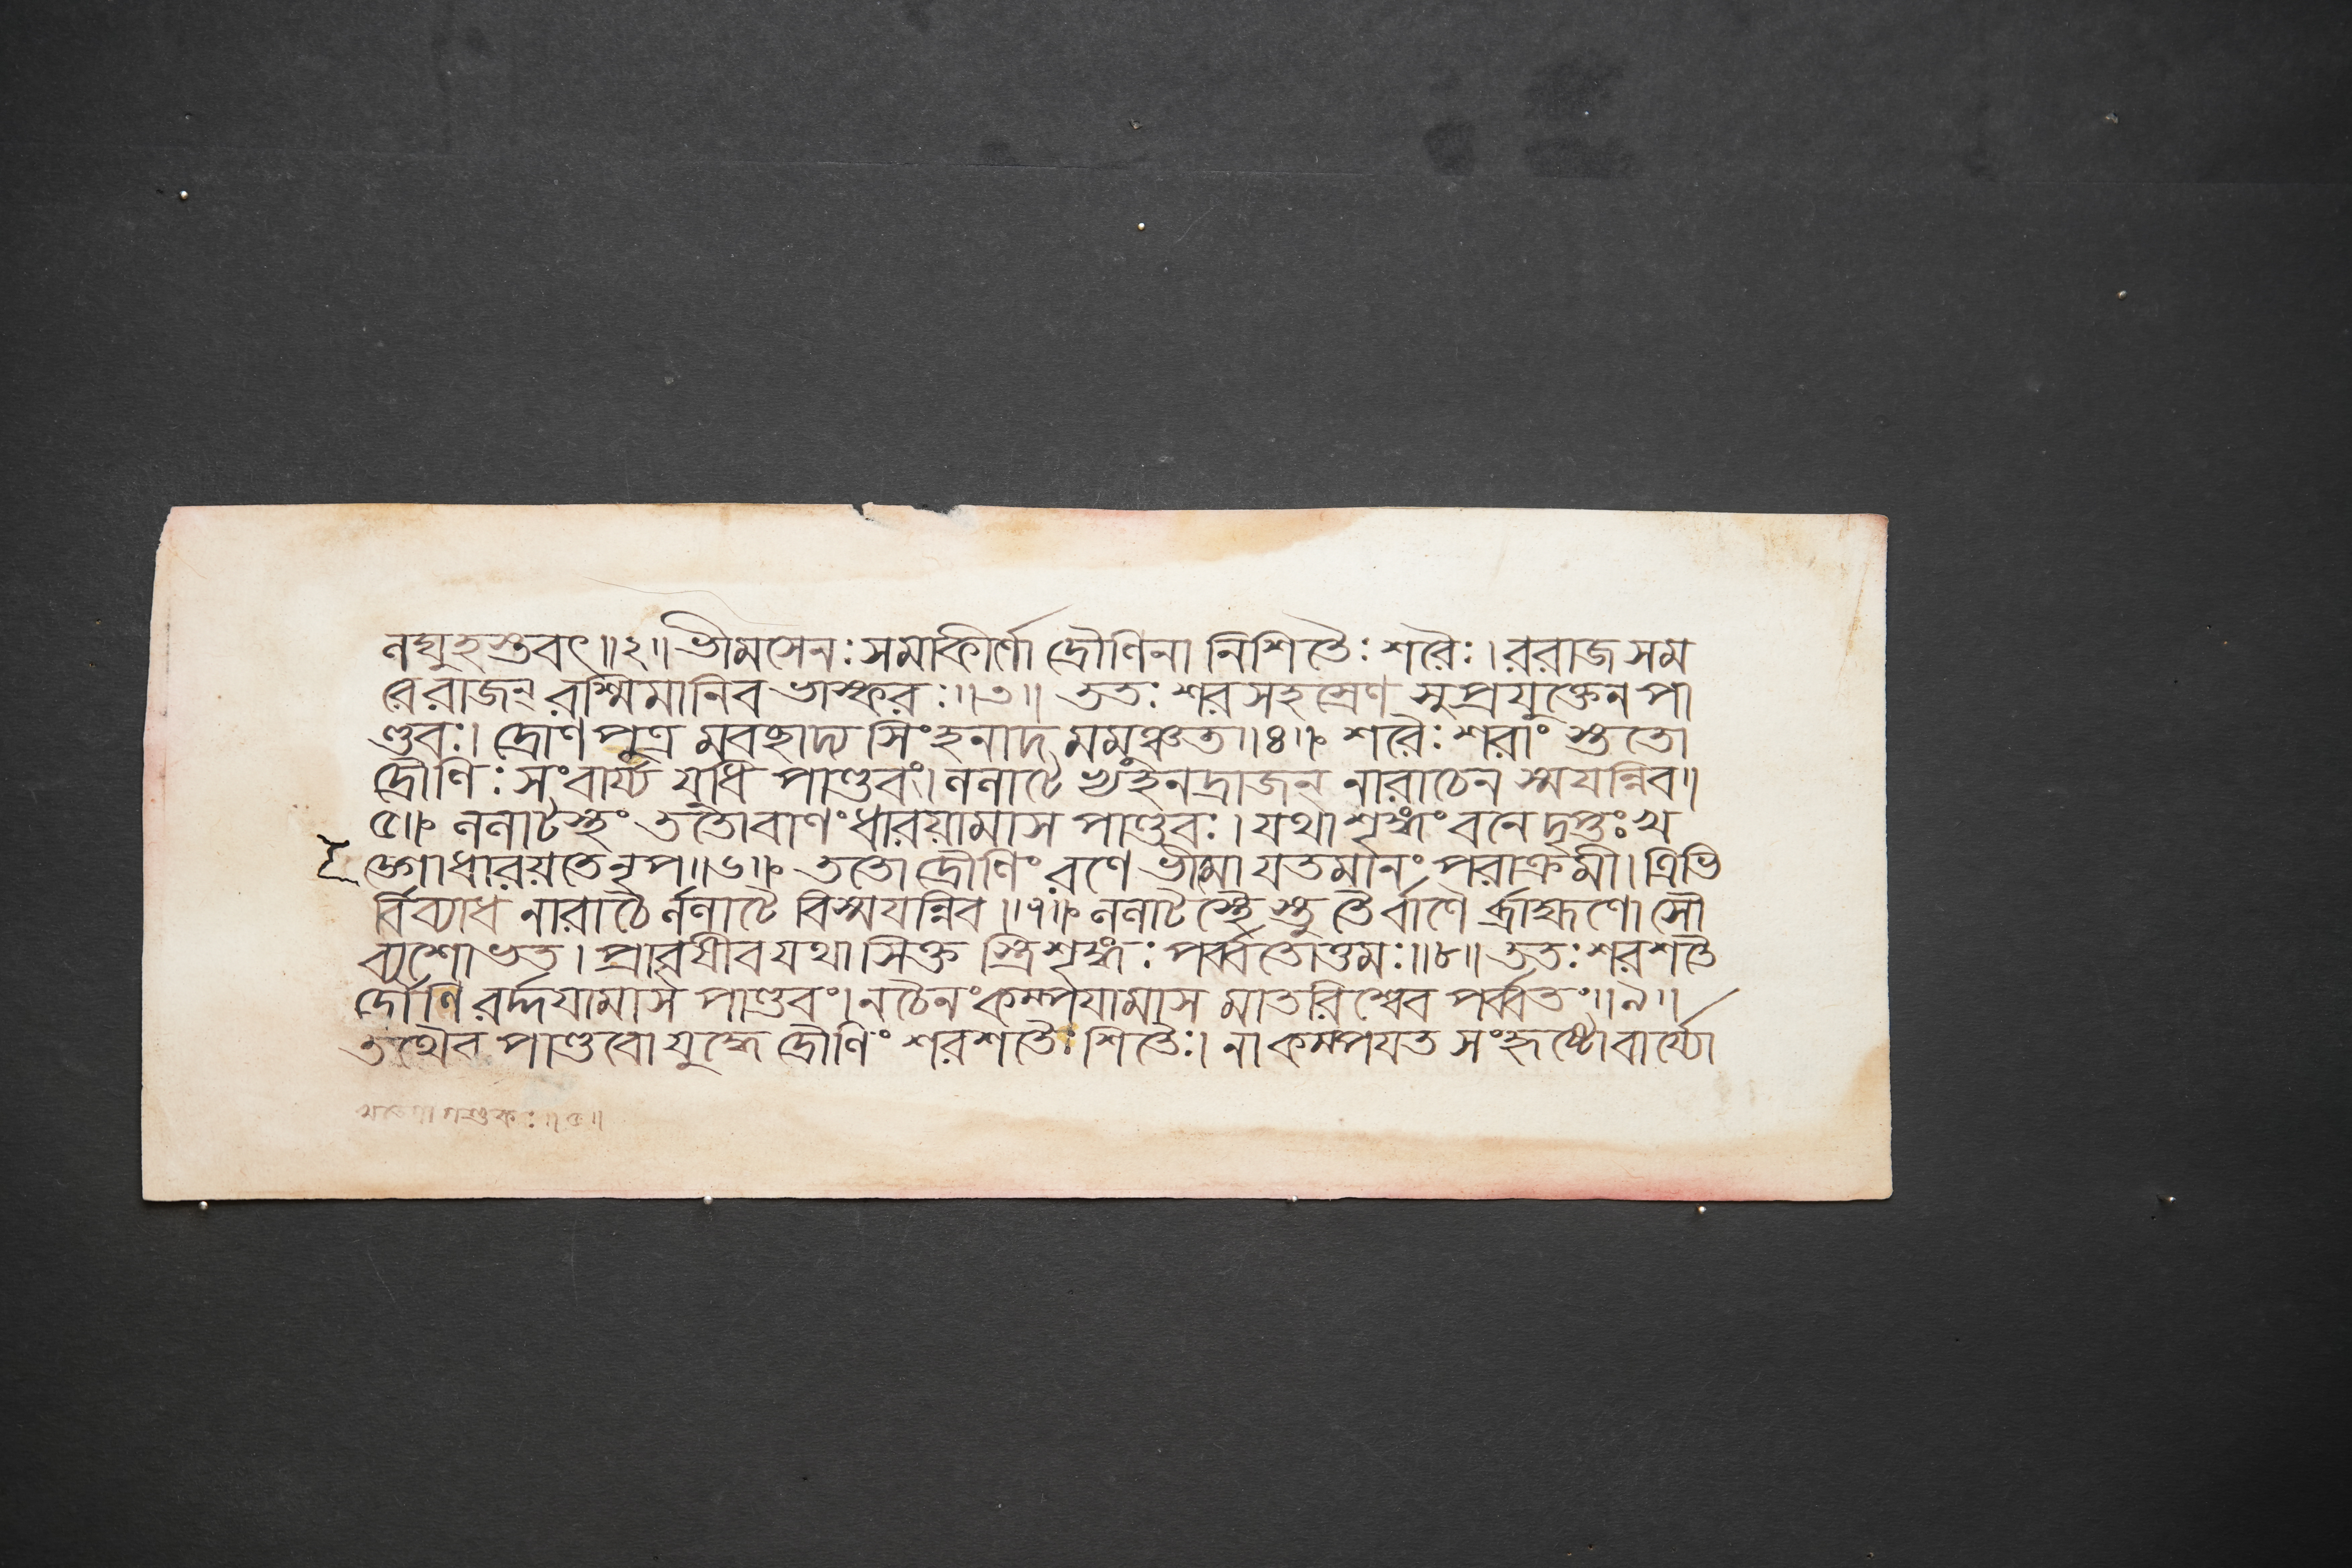 নঘ্যুহস্তবৎ॥২॥ভীমসেনঃসমাকীর্ণো দ্রৌণিনা নিশিতৈঃ শরৈঃ।ররাজ সম
রে রাজন্ রশ্মিমানিব ভাস্করঃ॥৩॥ ততঃ শর সহস্রেণ সুপ্রযুক্তেন পা
ণ্ডবঃ। দ্রোণপুত্র মবছাদ্য সিংহনাদ মমুঞ্চত॥৪॥ শরৈঃ শরাং স্ততো
দ্রৌণিঃ সংবার্য্য যুধি পাণ্ডবং।ললাটে ভ্যহনদ্রাজন্ নারাচেন স্ময়ন্নিব॥
৫॥ ললাটস্থং ততোবাণংধারয়ামাস পাণ্ডবঃ। যথা শৃঙ্গং বনে দৃপ্তঃ খ
ড়্গোধারয়তেনৃপ॥৬॥ ততো দ্রৌণিং রণে ভীমো যতমানং পরাক্রমী। ত্রিভি
র্বিব্যাধ নারাচৈ র্ললাটে বিস্ময়ন্নিব॥৭॥ ললাটস্থৈ স্তু তৈর্বাণৈ র্ব্রাহ্মণো সৌ
ব্যশোভত। প্রাবৃষীবযথা সিক্ত স্ত্রিশৃঙ্গঃ পর্ব্বতোত্তমঃ॥৮॥ ততঃ শরশতৈ
র্দ্রৌণি রর্দ্দয়ামাস পাণ্ডবং। নচৈনংকম্পয়ামাস মাতরিশ্বেব পর্ব্বতং॥৯॥
তথৈব পাণ্ডবো যুদ্ধে দ্রৌণিং শরশতৈঃ শিতৈঃ। নাকম্পয়ত সংহৃষ্টোবার্য্যো